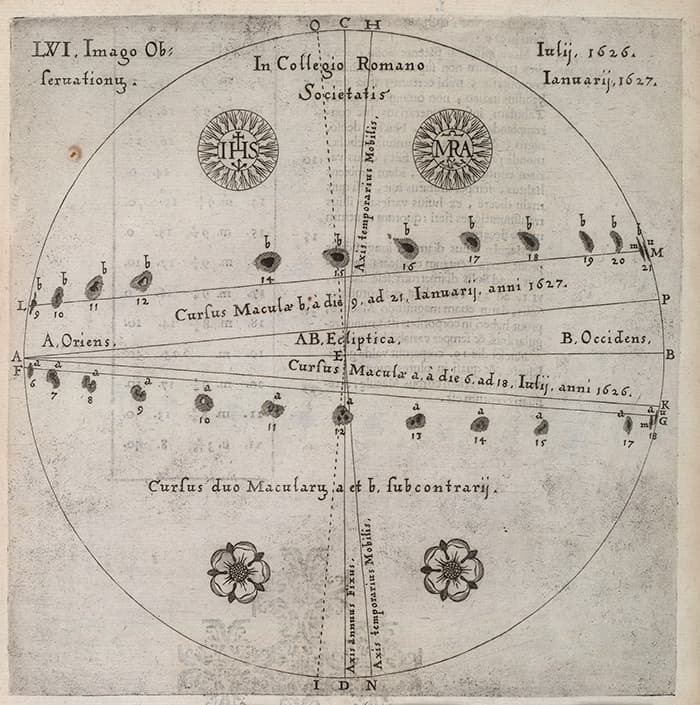 O C H
LVI. Imago Ob⸗
seruationũ.
In Collegio Romano
Societatis
Iulij, 1626.
Ianuarij, 1627.
IHS
MRA
Axis temporarius Mobilis.
b b b b b b b b b b b b
L 9 10 11 12 14 15 16 17 18 19 20 m n 21 M
Cursus Maculæ b, à die 9. ad 21, Ianuarij, anni 1627.
P
A, Oriens.
AB, Ecliptica.
B, Occidens.
A E B
F
Cursus Maculæ a, à die 6. ad 18, Iulij, anni 1626.
K
a a a a a a a a a a a a
6 7 8 9 10 11 12 13 14 15 17 m 18 G
Cursus duo Macularũ a et b, subcontrarij.
Axis annuus Fixus.
Axis temporarius Mobilis.
I D N